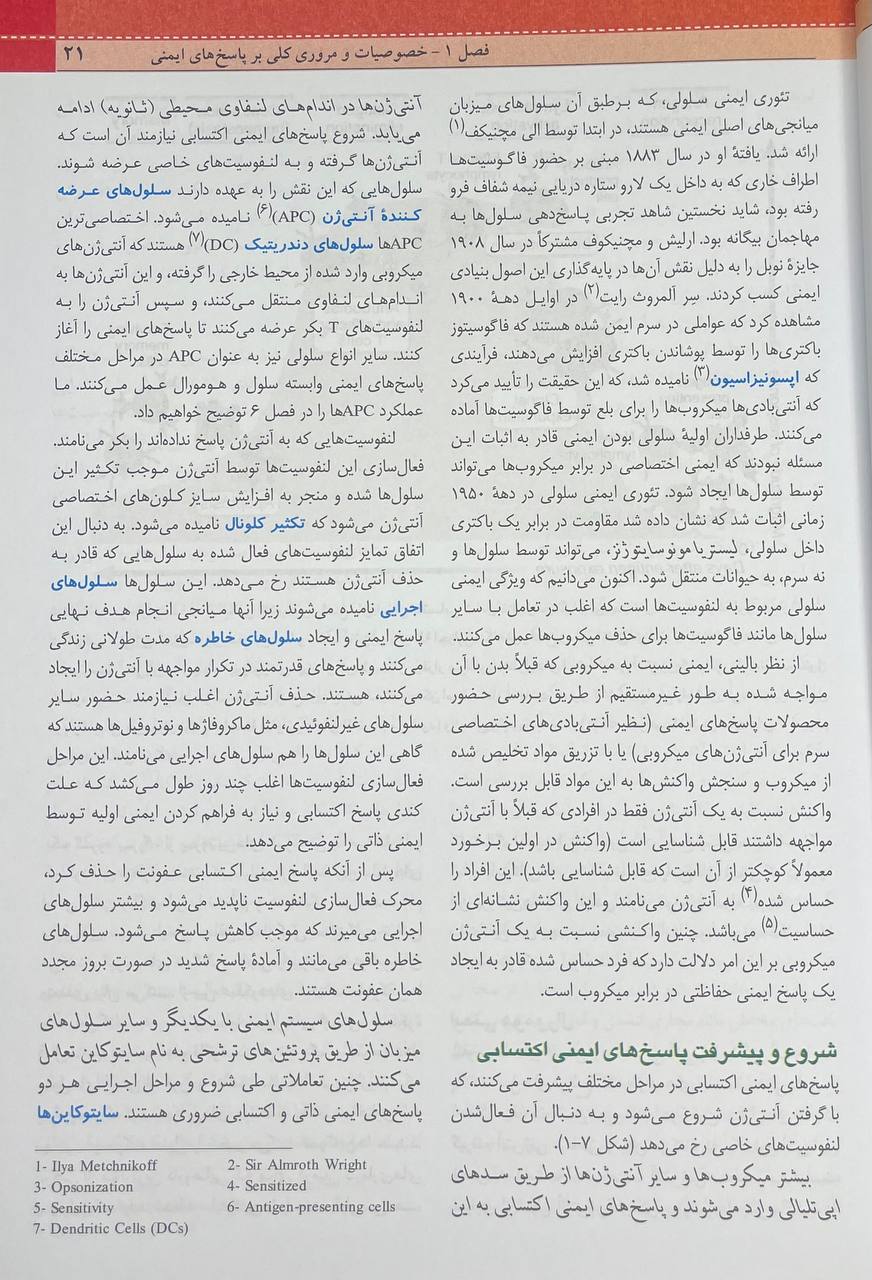 فصل ۱ - خصوصیات و مروری کلی بر پاسخ‌های ایمنی
۲۱
تئوری ایمنی سلولی، که برطبق آن سلول‌های میزبان
میانجی‌های اصلی ایمنی هستند، در ابتدا توسط الی مچنیکف(۱)
ارائه شد. یافتهٔ او در سال ۱۸۸۳ مبنی بر حضور فاگوسیت‌ها
اطراف خاری که به داخل یک لارو ستاره دریایی نیمه شفاف فرو
رفته بود، شاید نخستین شاهد تجربی پاسخ‌دهی سلول‌ها به
مهاجمان بیگانه بود. ارلیش و مچنیکوف مشترکاً در سال ۱۹۰۸
جایزهٔ نوبل را به دلیل نقش آن‌ها در پایه‌گذاری این اصول بنیادی
ایمنی کسب کردند. سِر آلمروث رایت(۲) در اوایل دههٔ ۱۹۰۰
مشاهده کرد که عواملی در سرم ایمن شده هستند که فاگوسیتوز
باکتری‌ها را توسط پوشاندن باکتری افزایش می‌دهند، فرآیندی
که اپسونیزاسیون(۳) نامیده شد، که این حقیقت را تأیید می‌کرد
که آنتی‌بادی‌ها میکروب‌ها را برای بلع توسط فاگوسیت‌ها آماده
می‌کنند. طرفداران اولیهٔ سلولی بودن ایمنی قادر به اثبات این
مسئله نبودند که ایمنی اختصاصی در برابر میکروب‌ها می‌تواند
توسط سلول‌ها ایجاد شود. تئوری ایمنی سلولی در دههٔ ۱۹۵۰
زمانی اثبات شد که نشان داده شد مقاومت در برابر یک باکتری
داخل سلولی، لیستریا مونوسایتوژنز، می‌تواند توسط سلول‌ها و
نه سرم، به حیوانات منتقل شود. اکنون می‌دانیم که ویژگی ایمنی
سلولی مربوط به لنفوسیت‌ها است که اغلب در تعامل با سایر
سلول‌ها مانند فاگوسیت‌ها برای حذف میکروب‌ها عمل می‌کنند.
از نظر بالینی، ایمنی نسبت به میکروبی که قبلاً بدن با آن
مواجه شده به طور غیرمستقیم از طریق بررسی حضور
محصولات پاسخ‌های ایمنی (نظیر آنتی‌بادی‌های اختصاصی
سرم برای آنتی‌ژن‌های میکروبی) یا با تزریق مواد تخلیص شده
از میکروب و سنجش واکنش‌ها به این مواد قابل بررسی است.
واکنش نسبت به یک آنتی‌ژن فقط در افرادی که قبلاً با آنتی‌ژن
مواجهه داشتند قابل شناسایی است (واکنش در اولین برخورد
معمولاً کوچکتر از آن است که قابل شناسایی باشد). این افراد را
حساس شده(۴) به آنتی‌ژن می‌نامند و این واکنش نشانه‌ای از
حساسیت(۵) می‌باشد. چنین واکنشی نسبت به یک آنتی‌ژن
میکروبی بر این امر دلالت دارد که فرد حساس شده قادر به ایجاد
یک پاسخ ایمنی حفاظتی در برابر میکروب است.
شروع و پیشرفت پاسخ‌های ایمنی اکتسابی
پاسخ‌های ایمنی اکتسابی در مراحل مختلف پیشرفت می‌کنند، که
با گرفتن آنتی‌ژن شروع می‌شود و به دنبال آن فعال‌شدن
لنفوسیت‌های خاصی رخ می‌دهد (شکل ۷-۱).
بیشتر میکروب‌ها و سایر آنتی‌ژن‌ها از طریق سدهای
اپی‌تلیالی وارد می‌شوند و پاسخ‌های ایمنی اکتسابی به این
آنتی‌ژن‌ها در اندام‌های لنفاوی محیطی (ثانویه) ادامه
می‌یابد. شروع پاسخ‌های ایمنی اکتسابی نیازمند آن است که
آنتی‌ژن‌ها گرفته و به لنفوسیت‌های خاصی عرضه شوند.
سلول‌هایی که این نقش را به عهده دارند سلول‌های عرضه
کنندهٔ آنتی‌ژن (APC)(۶) نامیده می‌شود. اختصاصی‌ترین
APCها سلول‌های دندریتیک (DC)(۷) هستند که آنتی‌ژن‌های
میکروبی وارد شده از محیط خارجی را گرفته، و این آنتی‌ژن‌ها به
اندام‌های لنفاوی منتقل می‌کنند، و سپس آنتی‌ژن را به
لنفوسیت‌های T بکر عرضه می‌کنند تا پاسخ‌های ایمنی را آغاز
کنند. سایر انواع سلولی نیز به عنوان APC در مراحل مختلف
پاسخ‌های ایمنی وابسته سلول و هومورال عمل می‌کنند. ما
عملکرد APCها را در فصل ۶ توضیح خواهیم داد.
لنفوسیت‌هایی که به آنتی‌ژن پاسخ نداده‌اند را بکر می‌نامند.
فعال‌سازی این لنفوسیت‌ها توسط آنتی‌ژن موجب تکثیر این
سلول‌ها شده و منجر به افزایش سایز کلون‌های اختصاصی
آنتی‌ژن می‌شود که تکثیر کلونال نامیده می‌شود. به دنبال این
اتفاق تمایز لنفوسیت‌های فعال شده به سلول‌هایی که قادر به
حذف آنتی‌ژن هستند رخ می‌دهد. این سلول‌ها سلول‌های
اجرایی نامیده می‌شوند زیرا آنها میانجی انجام هدف نهایی
پاسخ ایمنی و ایجاد سلول‌های خاطره که مدت طولانی زندگی
می‌کنند و پاسخ‌های قدرتمند در تکرار مواجهه با آنتی‌ژن را ایجاد
می‌کنند، هستند. حذف آنتی‌ژن اغلب نیازمند حضور سایر
سلول‌های غیرلنفوئیدی، مثل ماکروفاژها و نوتروفیل‌ها هستند که
گاهی این سلول‌ها را هم سلول‌های اجرایی می‌نامند. این مراحل
فعال‌سازی لنفوسیت‌ها اغلب چند روز طول می‌کشد که علت
کندی پاسخ اکتسابی و نیاز به فراهم کردن ایمنی اولیه توسط
ایمنی ذاتی را توضیح می‌دهد.
پس از آنکه پاسخ ایمنی اکتسابی عفونت را حذف کرد،
محرک فعال‌سازی لنفوسیت ناپدید می‌شود و بیشتر سلول‌های
اجرایی می‌میرند که موجب کاهش پاسخ می‌شود. سلول‌های
خاطره باقی می‌مانند و آمادهٔ پاسخ شدید در صورت بروز مجدد
همان عفونت هستند.
سلول‌های سیستم ایمنی با یکدیگر و سایر سلول‌های
میزبان از طریق پروتئین‌های ترشحی به نام سایتوکاین تعامل
می‌کنند. چنین تعاملاتی طی شروع و مراحل اجرایی هر دو
پاسخ‌های ایمنی ذاتی و اکتسابی ضروری هستند. سایتوکاین‌ها
1- Ilya Metchnikoff 2- Sir Almroth Wright
3- Opsonization 4- Sensitized
5- Sensitivity 6- Antigen-presenting cells
7- Dendritic Cells (DCs)